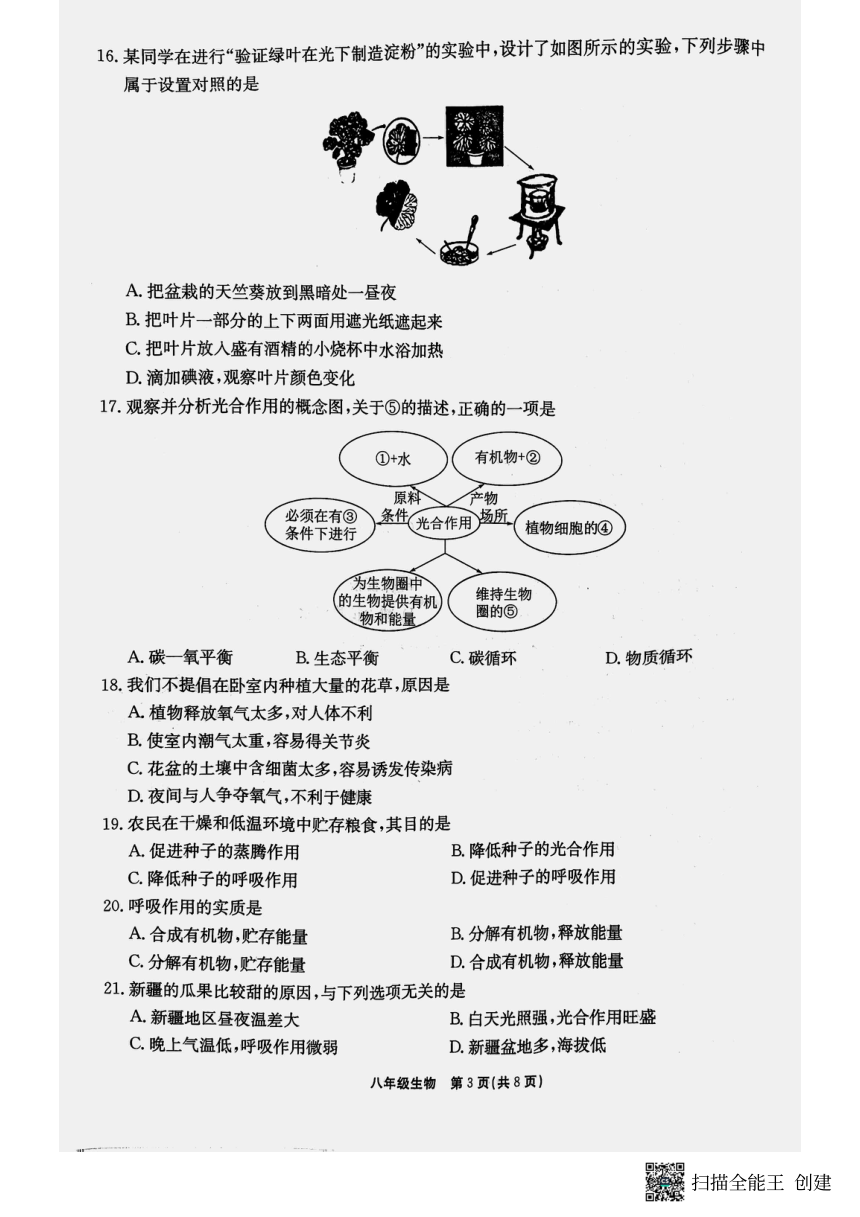 16. 某同学在进行“验证绿叶在光下制造淀粉”的实验中,设计了如图所示的实验,下列步骤中
属于设置对照的是
A. 把盆栽的天竺葵放到黑暗处一昼夜
B. 把叶片一部分的上下两面用遮光纸遮起来
C. 把叶片放入盛有酒精的小烧杯中水浴加热
D. 滴加碘液,观察叶片颜色变化
17. 观察并分析光合作用的概念图,关于⑤的描述,正确的一项是
①+水
有机物+②
原料
产物
必须在有③
条件下进行
条件
光合作用
场所
植物细胞的④
为生物圈中
的生物提供有机
物和能量
维持生物
圈的⑤
A. 碳一氧平衡 B. 生态平衡 C. 碳循环 D. 物质循环
18. 我们不提倡在卧室内种植大量的花草,原因是
A. 植物释放氧气太多,对人体不利
B. 使室内潮气太重,容易得关节炎
C. 花盆的土壤中含细菌太多,容易诱发传染病
D. 夜间与人争夺氧气,不利于健康
19. 农民在干燥和低温环境中贮存粮食,其目的是
A. 促进种子的蒸腾作用 B. 降低种子的光合作用
C. 降低种子的呼吸作用 D. 促进种子的呼吸作用
20. 呼吸作用的实质是
A. 合成有机物,贮存能量 B. 分解有机物,释放能量
C. 分解有机物,贮存能量 D. 合成有机物,释放能量
21. 新疆的瓜果比较甜的原因,与下列选项无关的是
A. 新疆地区昼夜温差大 B. 白天光照强,光合作用旺盛
C. 晚上气温低,呼吸作用微弱 D. 新疆盆地多,海拔低
八年级生物 第3页(共8页)
扫描全能王 创建